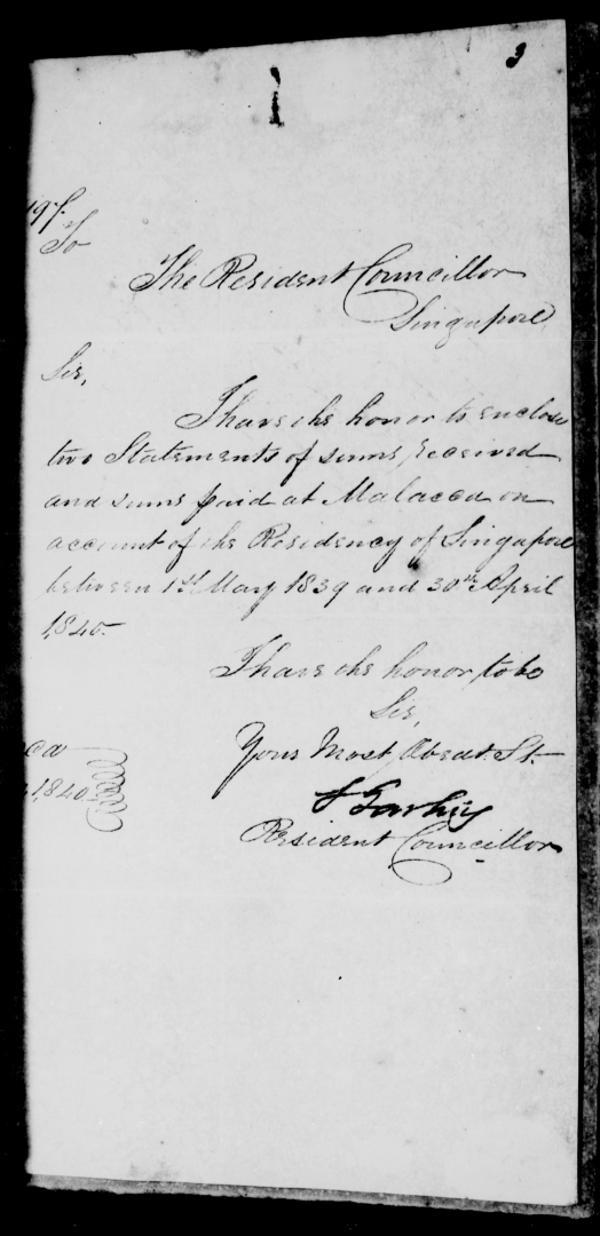 3
197.
To
The Resident Councillor
Singapore
Sir,
I have the honor to enclose
two Statements of sums received
and sums paid at Malacca on
account of the Residency of Singapore
between 1st May 1839 and 30th April
1840.
I have the honor to be
Sir,
Your Most Obedt. St.
ca
1840
Resident Councillor